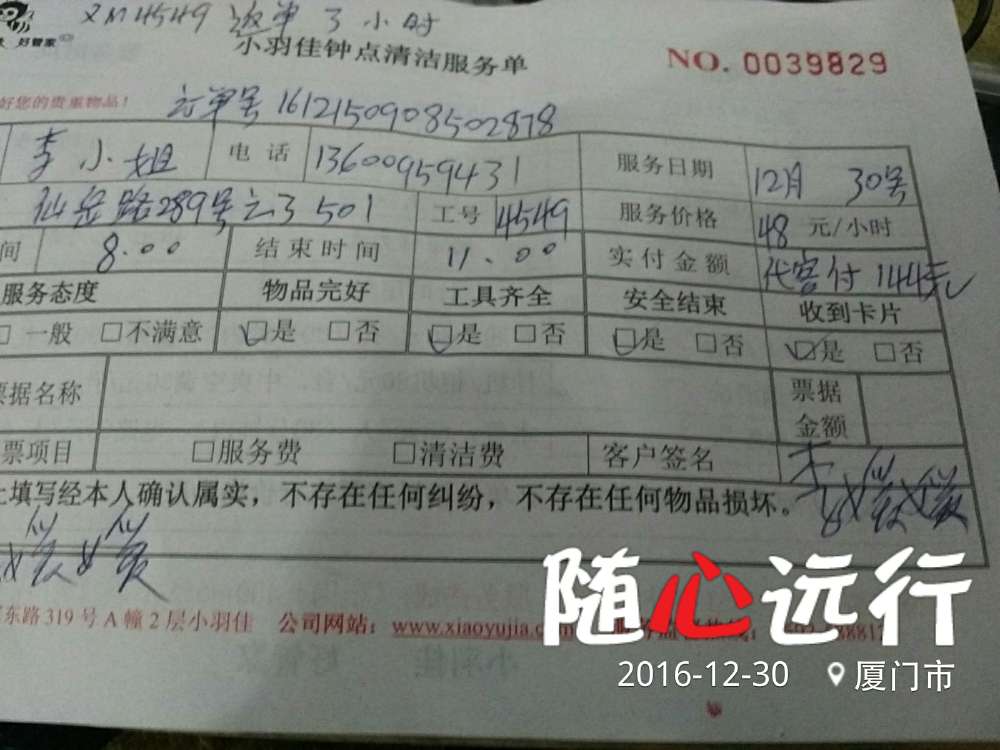 XM4549 派单 3小时
好管家
小羽佳钟点清洁服务单
NO. 0039829
好您的贵重物品!
订单号 1612150908502878
李小姐 电话 13600959431 服务日期 12月 30号
仙岳路289号之3 501 工号 4549 服务价格 48 元/小时
间 8.00 结束时间 11.00 实付金额 代客付 144元
服务态度 物品完好 工具齐全 安全结束 收到卡片
□一般 □不满意 □是 □否 □是 □否 □是 □否 □是 □否
票据名称 票据金额
票项目 □服务费 □清洁费 客户签名 李媛媛
上填写经本人确认属实，不存在任何纠纷，不存在任何物品损坏。
媛媛
东路319号A幢2层小羽佳 公司网站：www.xiaoyujia.c
随心远行
2016-12-30 厦门市